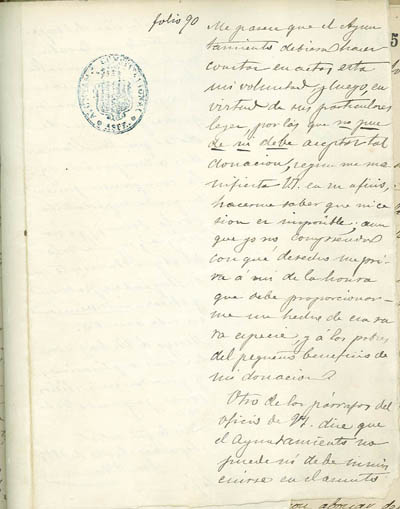 folio 90
Me parece que el Ayun-
tamiento debiera hacer
constar en acta, esta
mi voluntad y luego, en
virtud de sus particulares
leyes, por las que no pue
de ni debe aceptar tal
donacion, segun me ma
nifiesta V. en su oficio,
hacerme saber que mi ce
sion es imposible; aun
que yo no comprendo
con qué derecho me pri-
va á mi de la honra
que debe proporcionar-
me un hecho de esa ra
ra especie, y á los pobres
del pequeño beneficio de
mi donacion.
Otro de los párrafos del
oficio de V. dice que
el Ayuntamiento no
puede ni debe inmis
cuirse en el asunto
5